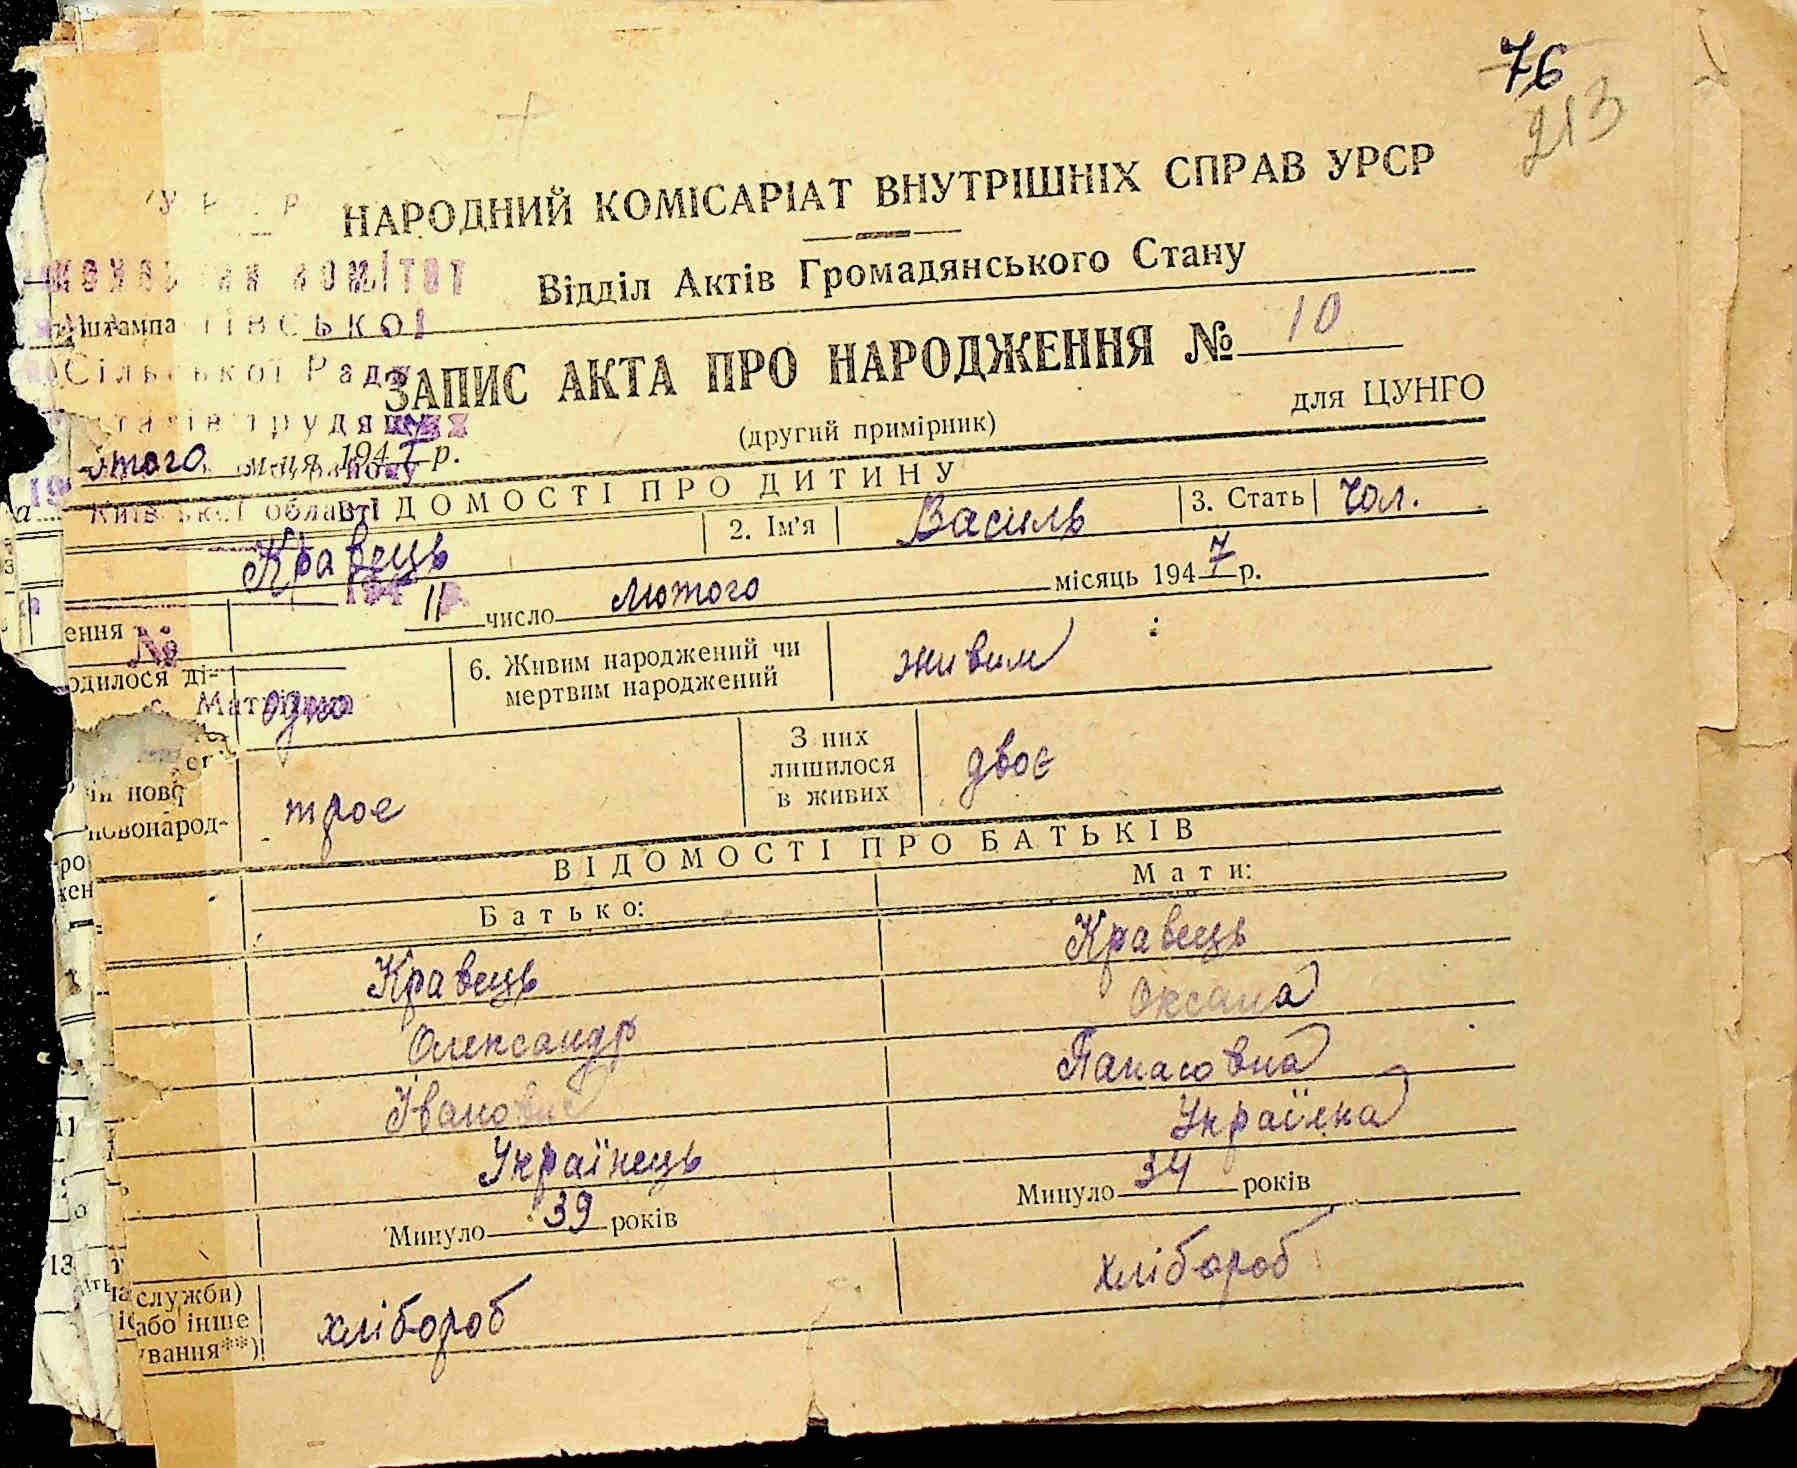 76
213
НАРОДНИЙ КОМІСАРІАТ ВНУТРІШНІХ СПРАВ УРСР
Відділ Актів Громадянського Стану
комітет
штампа
СЬКОЇ
Сільської Ради
трудящих
ЗАПИС АКТА ПРО НАРОДЖЕННЯ № 10
для ЦУНГО
(другий примірник)
ого 1947 р.
ВІДОМОСТІ ПРО ДИТИНУ
Київської області
Кравець 2. Ім'я Василь 3. Стать чол.
ення 11 число лютого місяць 1947 р.
№
одилося ді- одно 6. Живим народжений чи мертвим народжений живим
чи ново
новонарод- троє З них лишилося в живих двоє
ВІДОМОСТІ ПРО БАТЬКІВ
Батько: Мати:
Кравець Кравець
Олександр Оксана
Іванович Панасовна
Українець Україна
Минуло 39 років Минуло 34 років
служби)
або інше
ування**) хлібороб хлібороб